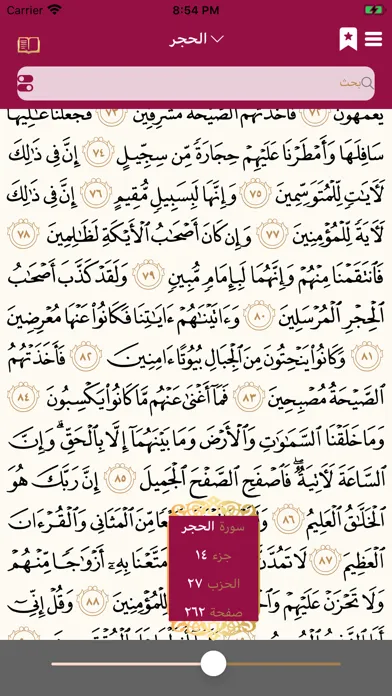 Carrier 8:54 PM
الحجر
بحث
يَعْمَهُونَ ٧٢ فَأَخَذَتْهُمُ ٱلصَّيْحَةُ مُشْرِقِينَ ٧٣ فَجَعَلْنَا عَٰلِيَهَا
سَافِلَهَا وَأَمْطَرْنَا عَلَيْهِمْ حِجَارَةً مِّن سِجِّيلٍ ٧٤ إِنَّ فِى ذَٰلِكَ
لَأَيَٰتٍ لِّلْمُتَوَسِّمِينَ ٧٥ وَإِنَّهَا لَبِسَبِيلٍ مُّقِيمٍ ٧٦ إِنَّ فِى ذَٰلِكَ
لَأَيَةً لِّلْمُؤْمِنِينَ ٧٧ وَإِن كَانَ أَصْحَٰبُ ٱلْأَيْكَةِ لَظَٰلِمِينَ ٧٨
فَٱنتَقَمْنَا مِنْهُمْ وَإِنَّهُمَا لَبِإِمَامٍ مُّبِينٍ ٧٩ وَلَقَدْ كَذَّبَ أَصْحَٰبُ
ٱلْحِجْرِ ٱلْمُرْسَلِينَ ٨٠ وَءَاتَيْنَٰهُمْ ءَايَٰتِنَا فَكَانُوا۟ عَنْهَا مُعْرِضِينَ
٨١ وَكَانُوا۟ يَنْحِتُونَ مِنَ ٱلْجِبَالِ بُيُوتًا ءَامِنِينَ ٨٢ فَأَخَذَتْهُمُ
ٱلصَّيْحَةُ مُصْبِحِينَ ٨٣ فَمَآ أَغْنَىٰ عَنْهُم مَّا كَانُوا۟ يَكْسِبُونَ ٨٤
وَمَا خَلَقْنَا ٱلسَّمَٰوَٰتِ وَٱلْأَرْضَ وَمَا بَيْنَهُمَآ إِلَّا بِٱلْحَقِّ ۗ وَإِنَّ
ٱلسَّاعَةَ لَأَتِيَةٌ ۖ فَٱصْفَحِ ٱلصَّفْحَ ٱلْجَمِيلَ ٨٥ إِنَّ رَبَّكَ هُوَ
ٱلْخَلَّٰقُ ٱلْعَلِيمُ ٨٦ مِّنَ ٱلْمَثَانِى وَٱلْقُرْءَانَ
ٱلْعَظِيمَ ٨٧ لَا تَمُدَّنَّ مَتَّعْنَا بِهِۦٓ أَزْوَٰجًا مِّنْهُمْ
وَلَا تَحْزَنْ عَلَيْهِمْ لِلْمُؤْمِنِينَ ٨٨ وَقُلْ إِنِّىٓ
أَنَا ٱلنَّذِيرُ ٱلْمُبِينُ
سورة الحجر
جزء ١٤
الحزب ٢٧
صفحة ٢٦٢